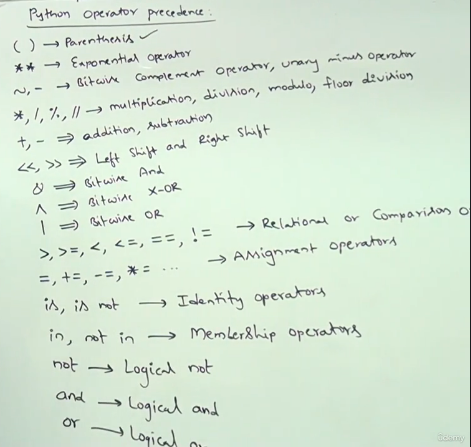 Python Operator precedence:
( ) → Parenthesis ✓
** → Exponential operator
~, - → Bitwise Complement Operator, unary minus operator
*, /, %, // → multiplication, division, modulo, floor division
+, - ⇒ addition, subtraction
<<, >> ⇒ Left Shift and Right Shift
& ⇒ Bitwise And
^ ⇒ Bitwise X-OR
| ⇒ Bitwise OR
>, >=, <, <=, ==, != → Relational or Comparison
=, +=, -=, *= ... → Assignment operators
is, is not → Identity operators
in, not in → Membership operators
not → Logical not
and → Logical and
or → Logical
Udemy